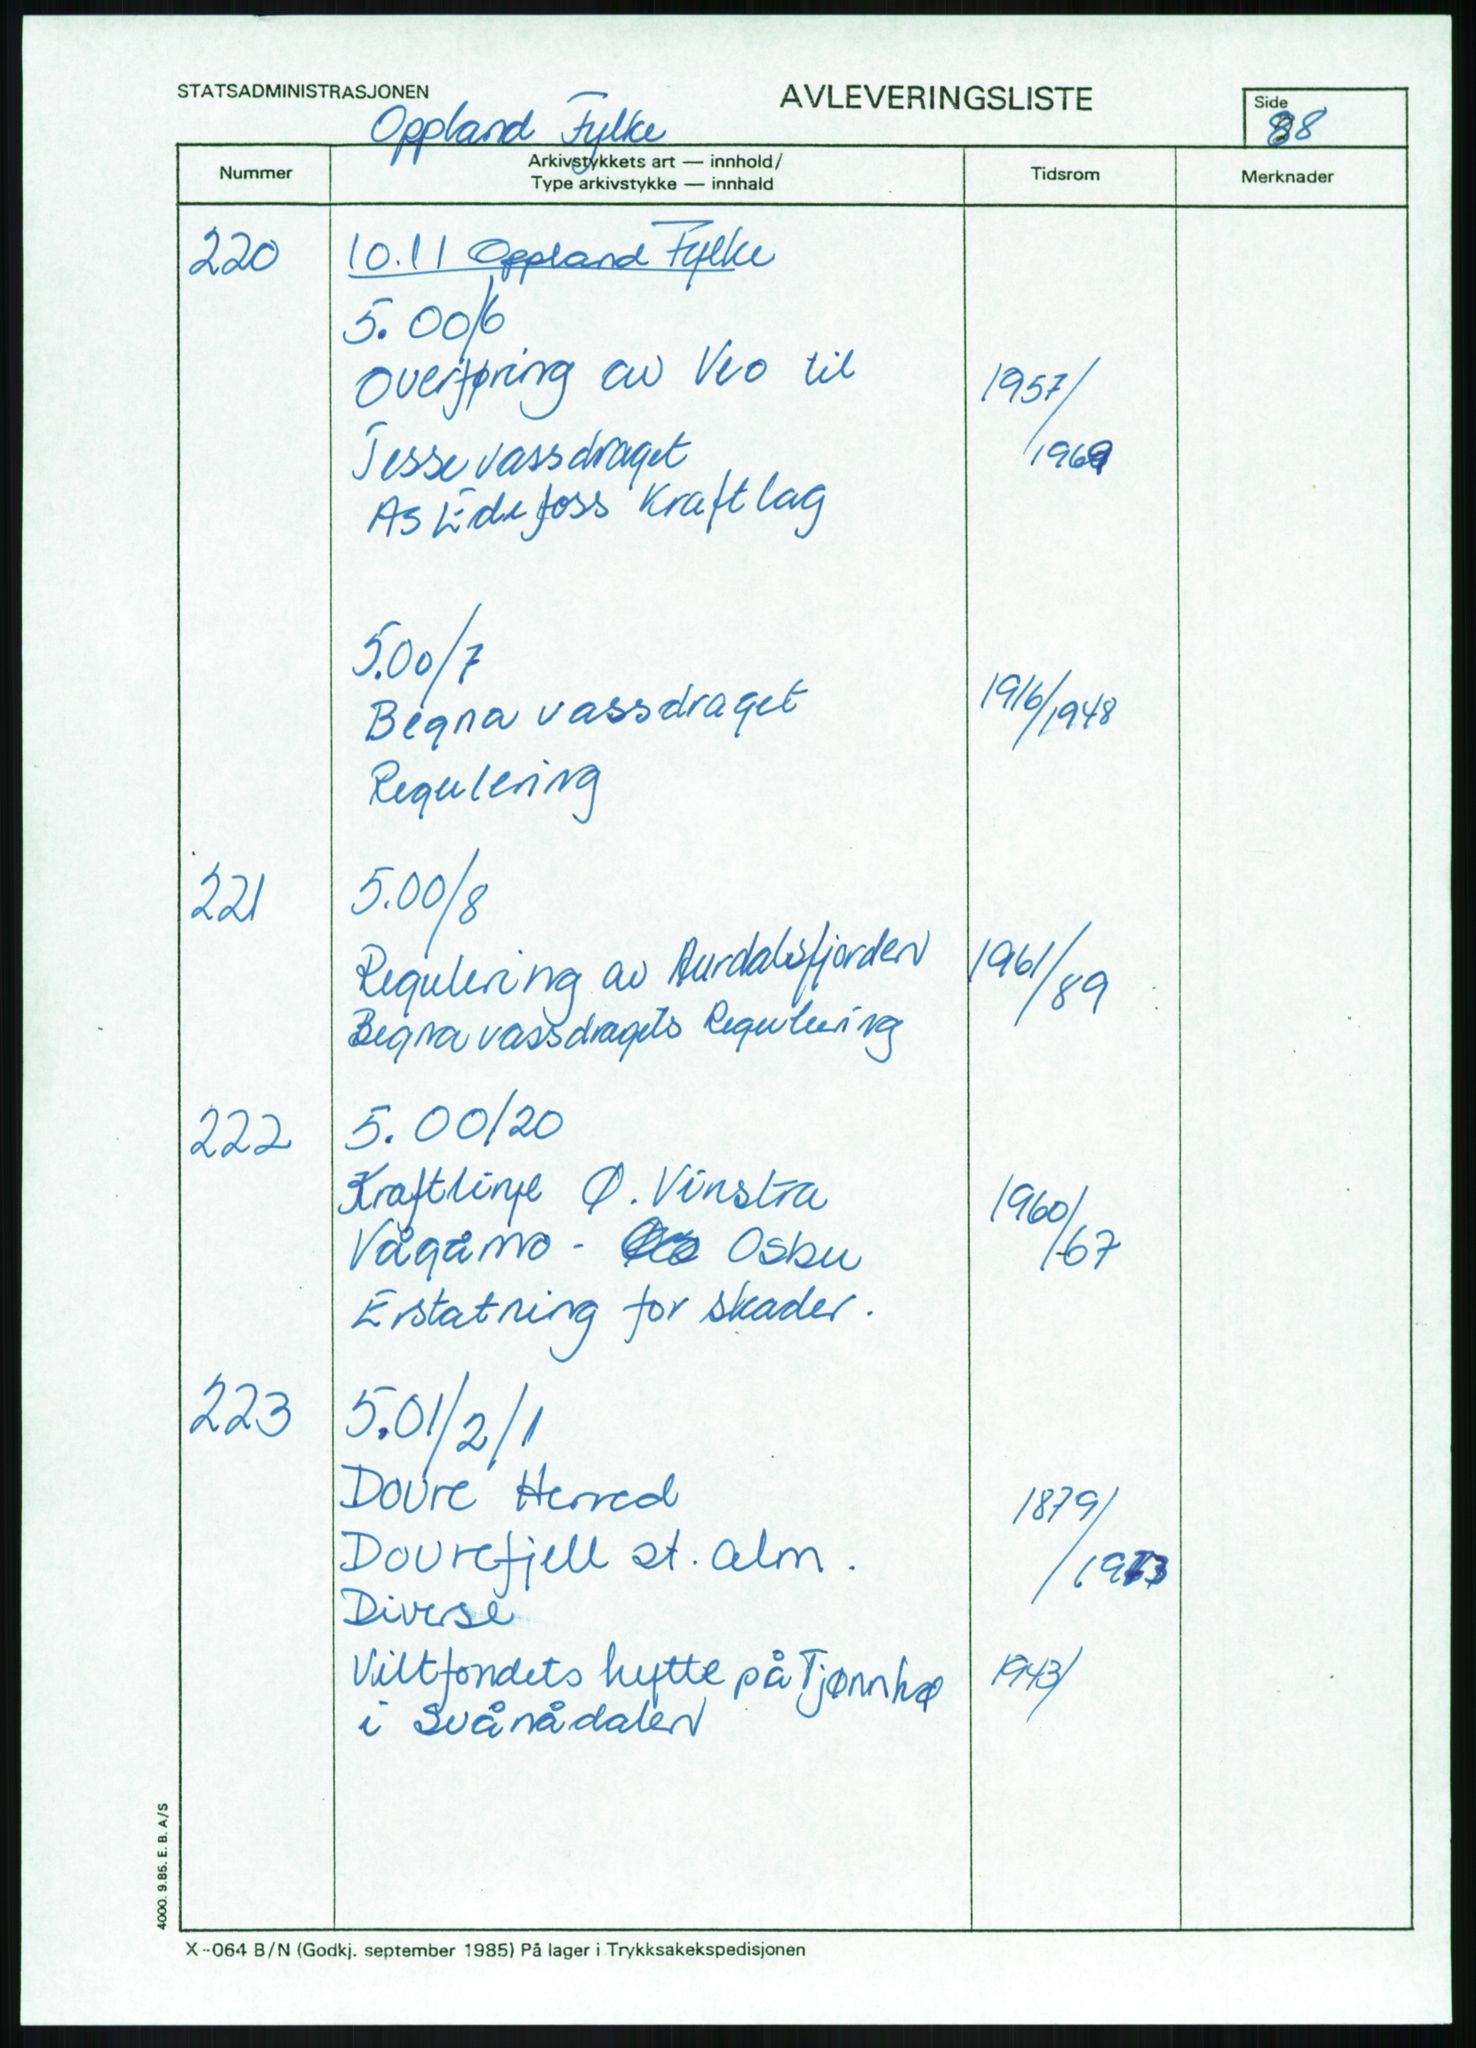 STATSADMINISTRASJONEN
AVLEVERINGSLISTE
Side
88
Oppland Fylke
Nummer
Arkivstykkets art — innhold/
Type arkivstykke — innhald
Tidsrom
Merknader
220 10.11 Oppland Fylke
5.00/6
Overføring av Veo til 1957/
Tessevassdraget 1969
AS Eidefoss Kraftlag
5.00/7
Begnavassdraget 1916/1948
Regulering
221 5.00/8
Regulering av Aurdalsfjorden 1961/89
Begnavassdragets Regulering
222 5.00/20
Kraftlinje Ø. Vinstra 1960/
Vågåmo - Osbu /67
Erstatning for skader.
223 5.01/2/1
Dovre Herred 1879/
Dovrefjell st. alm. /1973
Diverse
Viltfondets hytte på Tjønnhø 1943/
i Svånådalen
4000. 9.85. E. B. A/S
X-064 B/N (Godkj. september 1985) På lager i Trykksakekspedisjonen